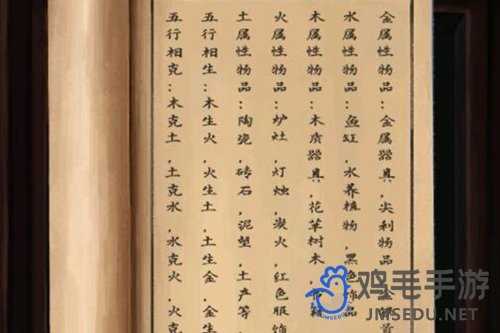 金属性物品：金属器具，尖利物品
水属性物品：鱼缸，水养植物，黑色饰品
木属性物品：木质器具，花草树木，
火属性物品：炉灶，灯烛，炭火，红色服饰
土属性物品：陶瓷，砖石，泥塑，土产等。
五行相生：木生火，火生土，土生金，金生
五行相克：木克土，土克水，水克火，火克
鸡毛手游
JMSEDU.NET